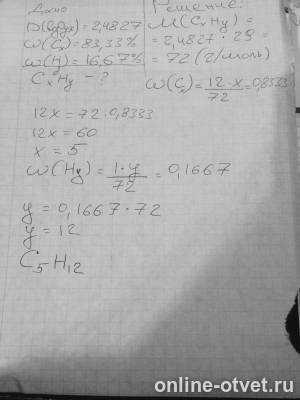 Дано
D(возд) = 2,4827
ω(Cₓ) = 83,33%
ω(H) = 16,67%
CₓHy - ?
Решение:
M(CₓHy) =
= 2,4827 · 29 =
= 72 (г/моль)
ω(Cₓ) = 12·x/72 = 0,8333
12x = 72 · 0,8333
12x = 60
x = 5
ω(Hy) = 1·y/72 = 0,1667
y = 0,1667 · 72
y = 12
C₅H₁₂
online-otvet.ru